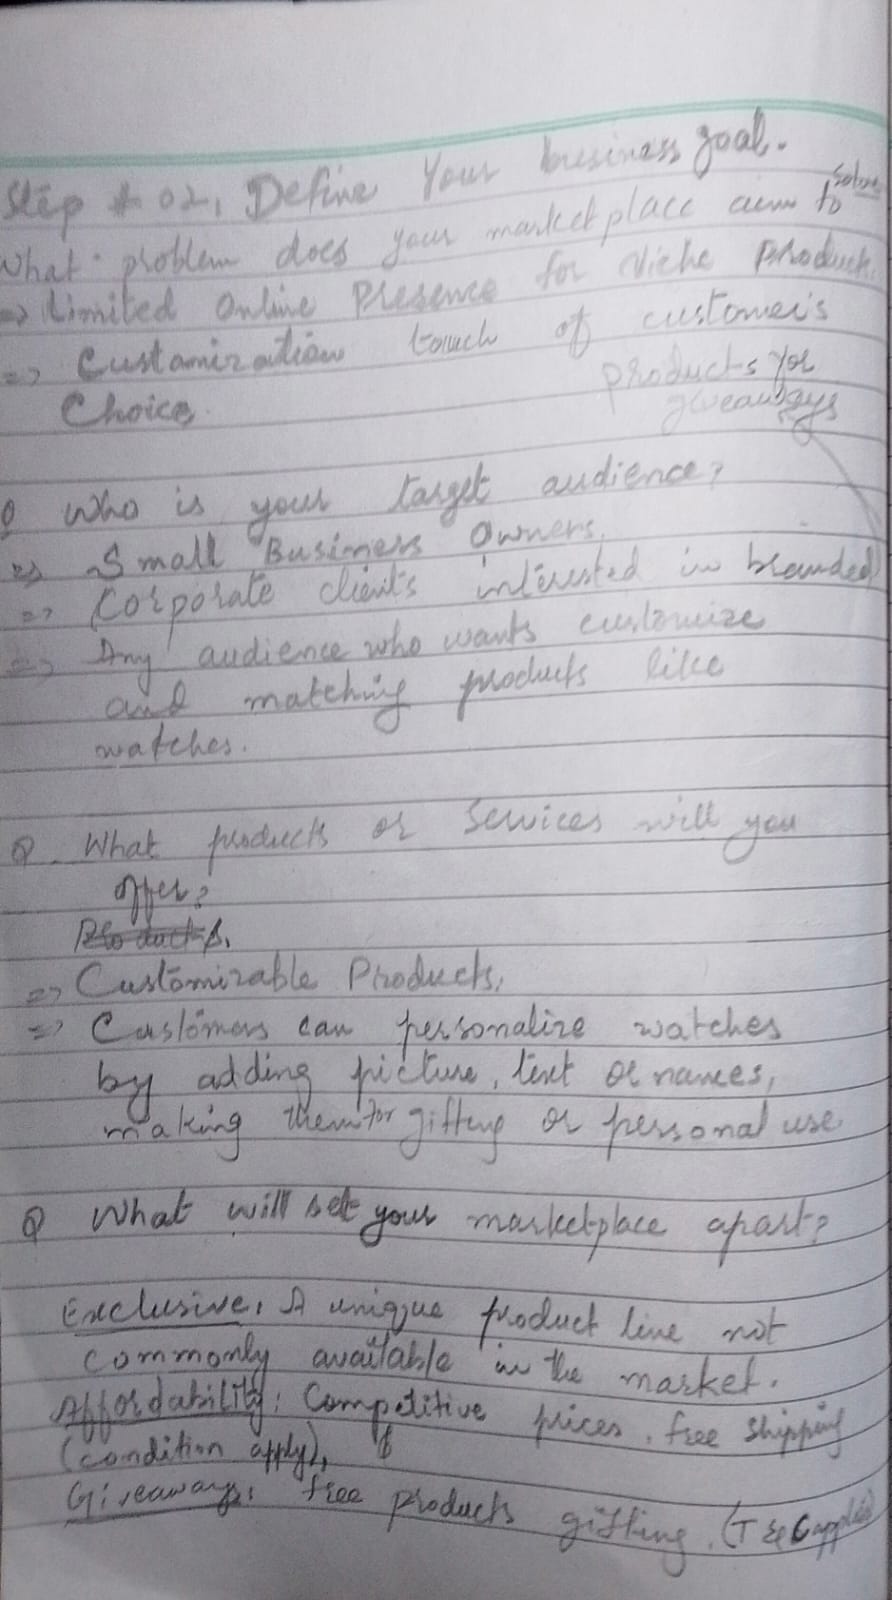 Step # 02, Define Your business goal.
What problem does your marketplace aim to solve
=> Limited Online Presence for Niche Product.
=> Custamization touch of customers
Choice.
products for
giveaways
Q Who is your target audience?
=> Small Business Owners.
=> Corporate clients interested in branded
=> Any audience who wants customize
and matching products like
watches.
Q What products or Services will you
offer?
Products.
=> Customizable Products,
=> Customers can personalize watches
by adding picture, text or names,
making them for gifting or personal use
Q What will set your marketplace apart?
Exclusive, A unique product line not
commonly available in the market.
Affordability: Competitive prices, free shipping
(condition apply),
Giveaways: free products gifting. (T & C applied)